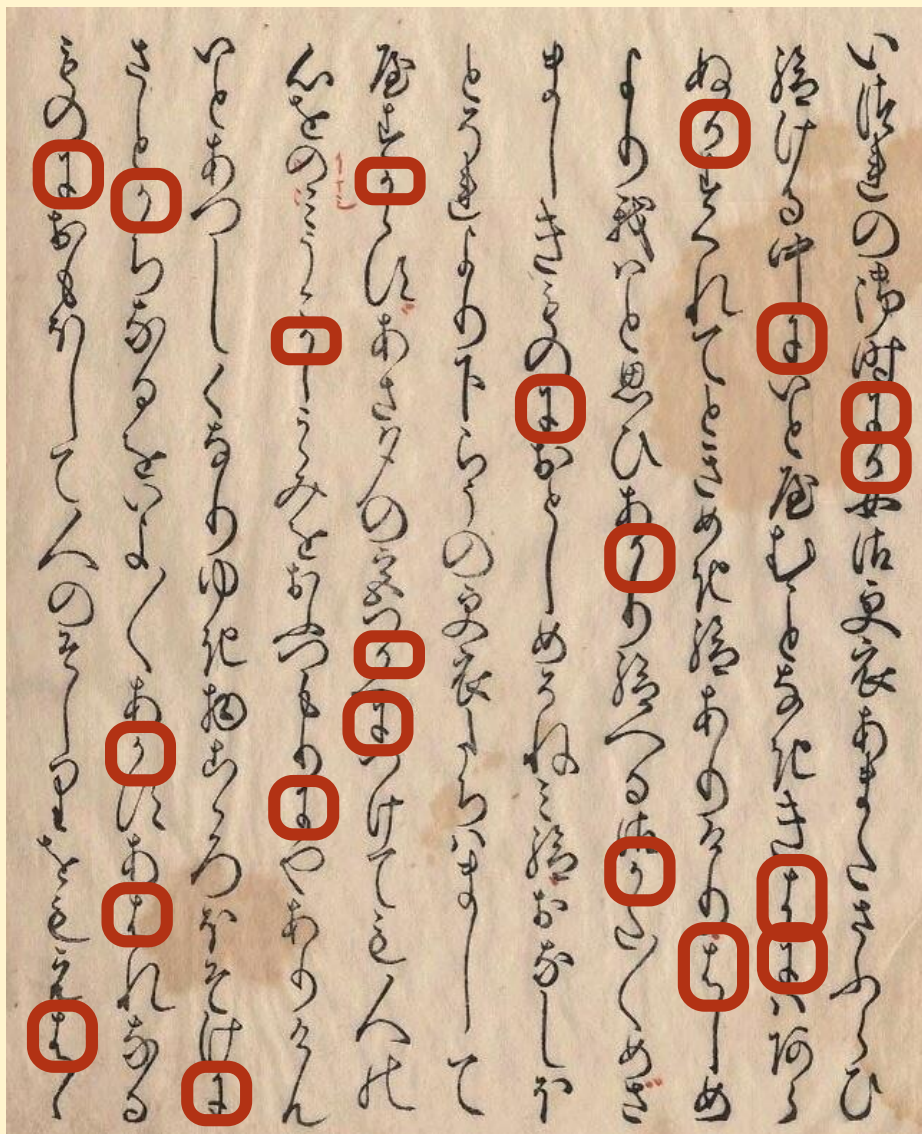 いつれの御時にか女御更衣あまたさふらひ
給ける中にいとやむことなききはにはあら
ぬかすくれてときめき給ありけりはしめ
より我はと思ひあかり給へる御かた〱めざ
ましきものにおとしめそねミ給おなしほ
とそれより下らうの更衣たちはまして
やすからずあさ夕の宮つかへにつけても人の
心をのミうこかしうらみをおふつもりにやありけん
いとあつしくなりゆき物こゝろほそけに
さとかちなるをいよ〱あかすあはれなる
ものにおもほして人のそしりをもえはゝ